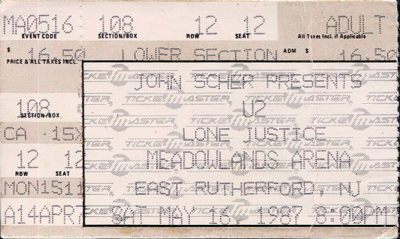 MA0516 108 12 12 ADULT
EVENT CODE SECTION/BOX ROW SEAT All Taxes Incl. if Applicable
$ 16.50 LOWER SECTION ADM $ 16.50
PRICE & ALL TAXES INCL.
JOHN SCHER PRESENTS
108 U2
SECTION/BOX
CA 15X LONE JUSTICE
12 12 MEADOWLANDS ARENA
ROW SEAT
MON1511 EAST RUTHERFORD, NJ
A14APR7 SAT MAY 16, 1987 8:00PM
TICKETMASTER